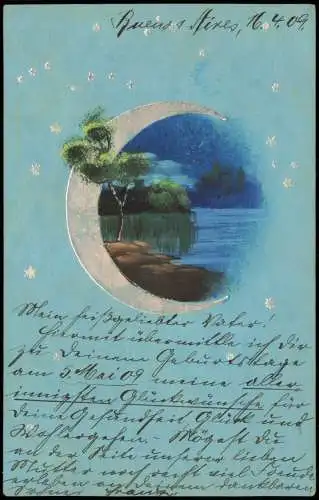 Buenos Aires, 16.4.09.
Mein heißgeliebter Vater!
Hiermit übermittle ich dir
zu Deinem Geburtstage
am 5. Mai 09 meine aller-
innigsten Glückwünsche für
Deine Gesundheit Glück und
Wohlergehen. – Mögest du
an der Seite unserer lieben
Mutter noch recht viel Freude
erleben an deinem dankbaren
Sohne Franz